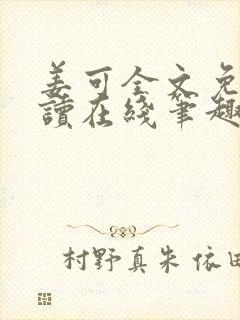 姜可全文免
读在线笔趣
村野真朱 依田